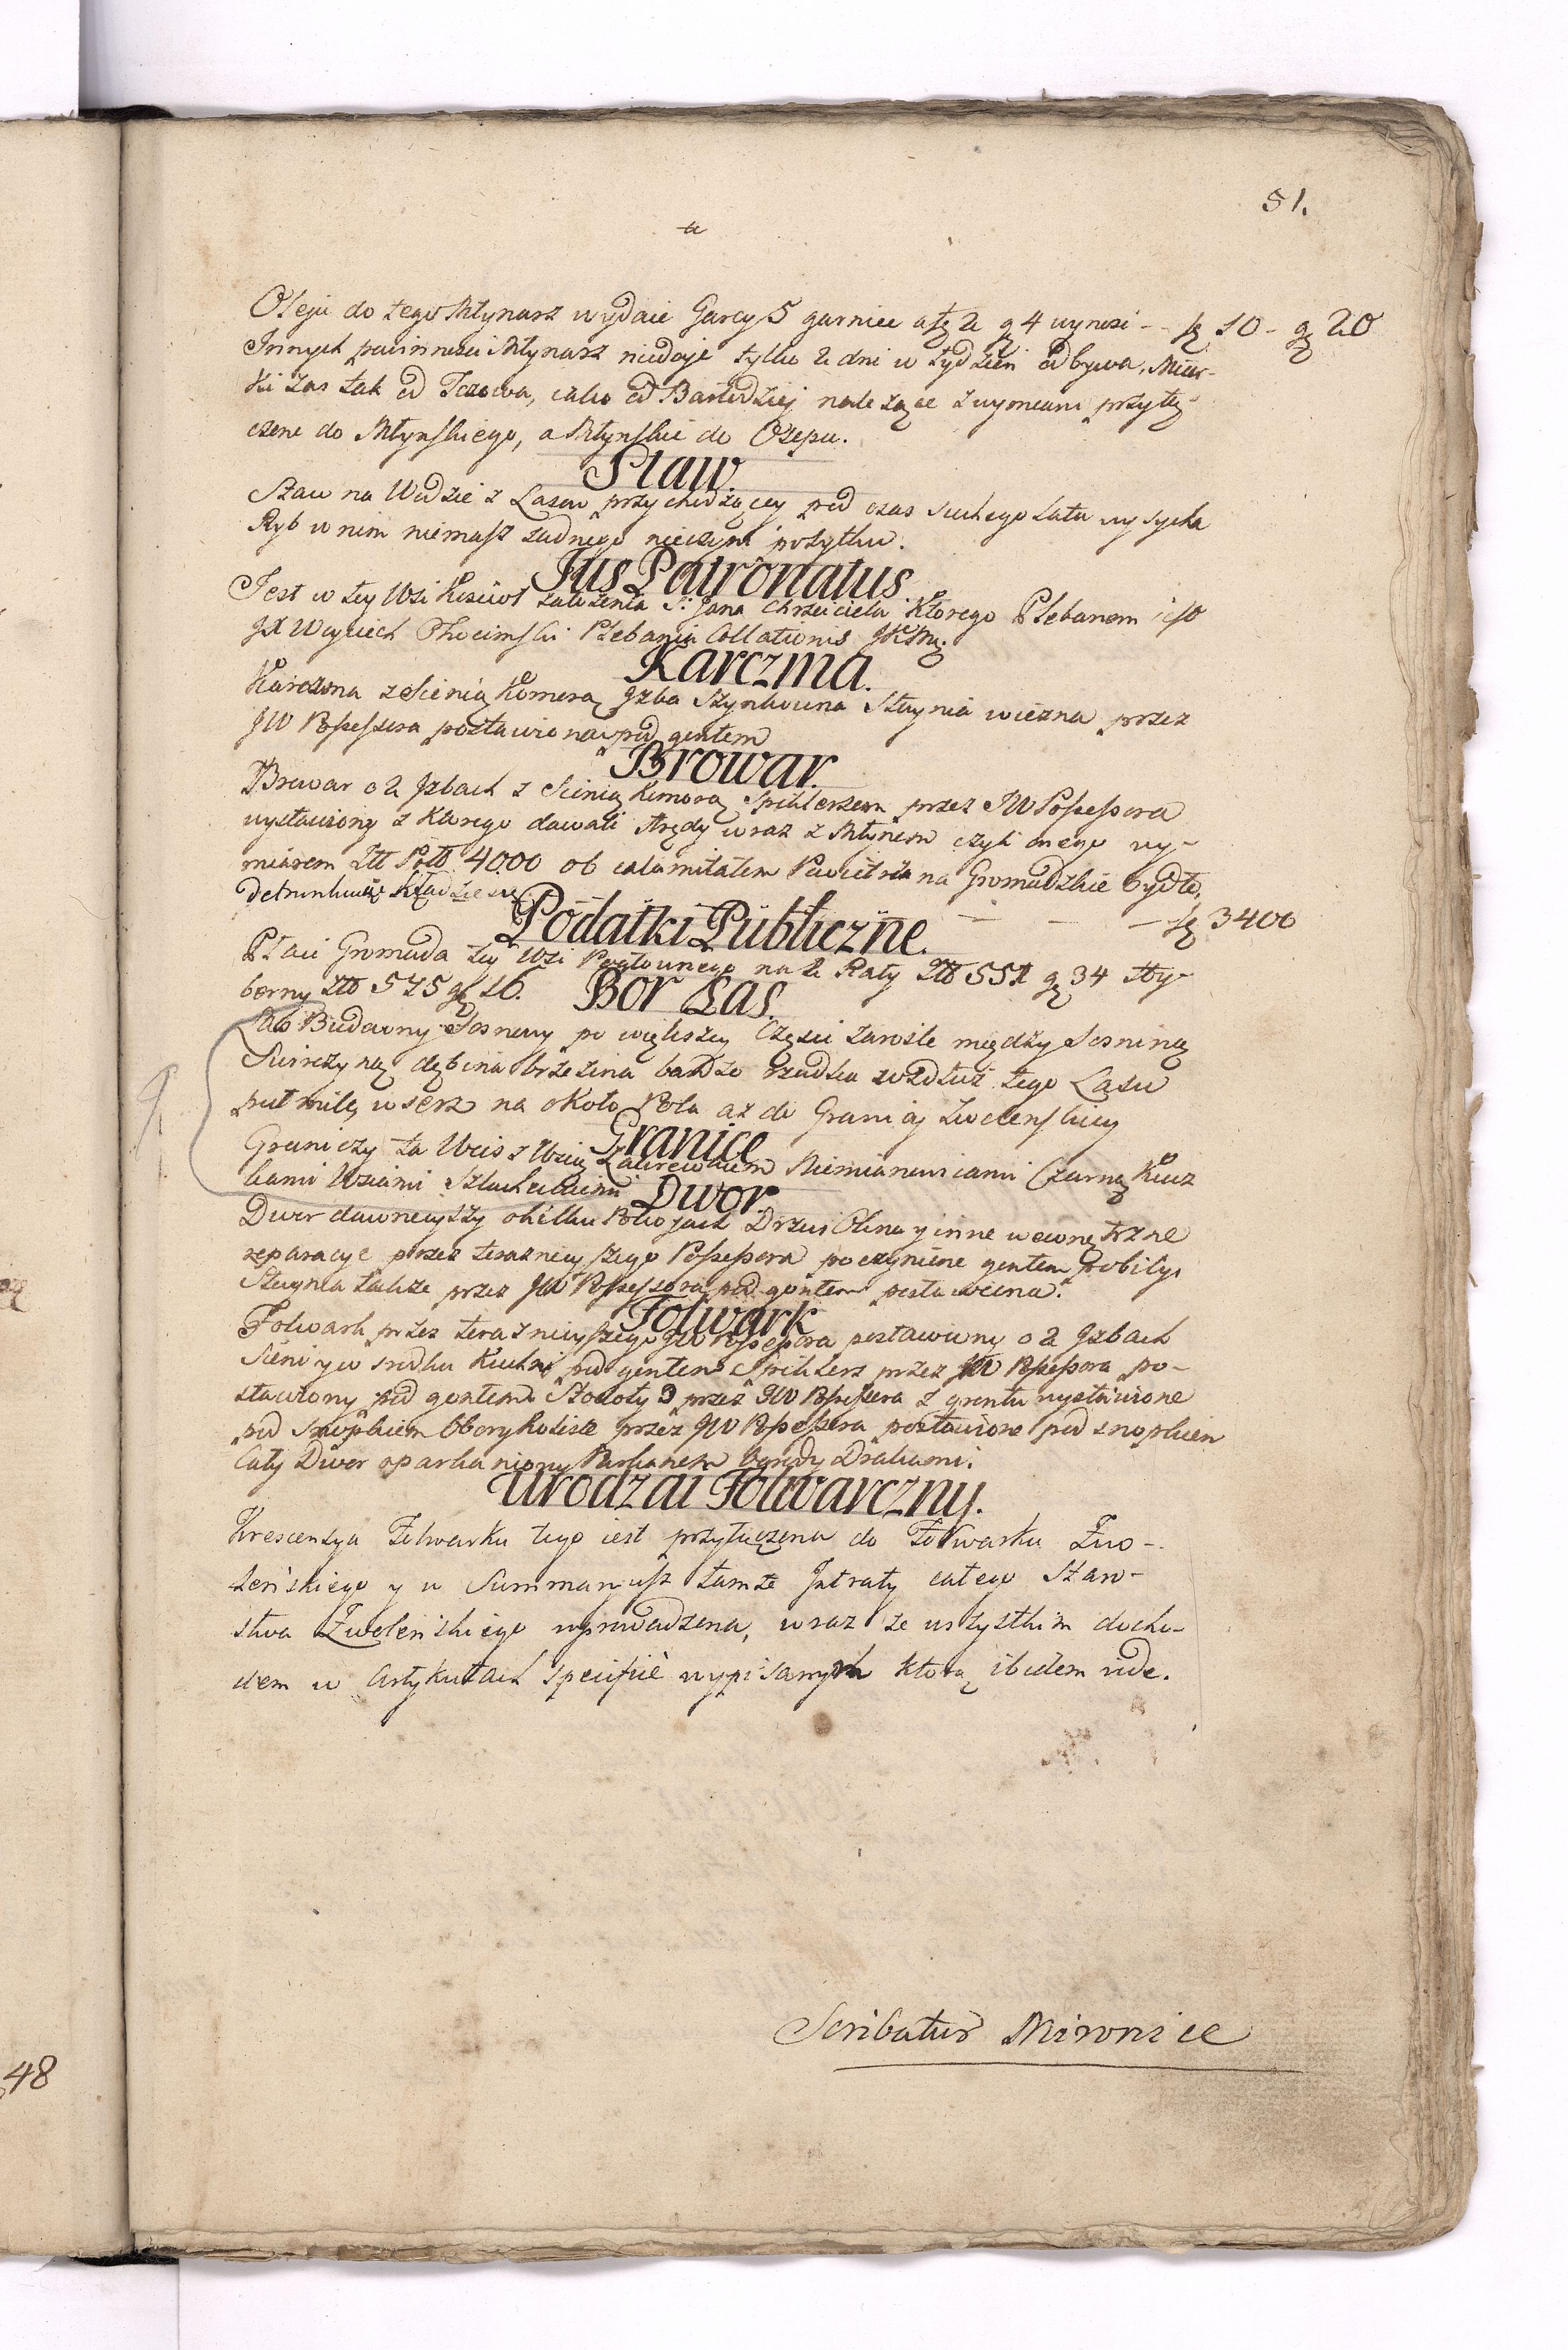 51.
a
Oleju do tego Młynarz wydaie Garcy 5 garniec a fł 2 gr 4 wynosi - - fł 10 - gr 20
Innych powinnosci Młynarz niedaje tylko 2 dni w tydzien odbywa, Miar-
ki zas tak od Tczowa, iako od Bartodziej należące z wymeam przyłą-
czone do Młynskiego, a Młynskie do Ozepu.
Staw.
Staw na Wodzie z Lasow przychodzącey pod czas suchego Lata wysycha
Ryb w nim niemasz żadnego nieczyni pożytku.
Jus Patronatus
Jest w tey Wsi Kosciół założenia S: Jana Chrzciciela Ktorego Plebanem iest
JX Woyciech Chocimski Plebania Collationis JKMci.
Karczma.
Karczma z Sienią Komorą Izba Szynkowna Staynia wiezna przez
JW Possessora postawiona pod gontem
Browar.
Browar o 2 Izbach z Sienią Komorą Spihlerzem przez JW Possessora
wystawiony z Ktorego dawali Arędy wraz z Młynem czyli onego wy-
miarem Złł Poll 4000 ob calamitatem Powietrza na Gromadzkie bydło,
detrunkuiąc Kładzie się - - - fł 3400
Podatki Publiczne.
Płaci Gromada tey Wsi Pogłownego na 2 Raty Złł 551 gr 34 Hy-
berny Złł 575 gr 16.
Bor Las.
Las Budowny Sosnowy po większey Części zarosle między Sosniną
Swirczyną dębina brzezina bardzo rzadka wzdłuż tego Lasu
puł milę w serz na około Pola aż do Granicy Zwolenskiey
Granice
Graniczy ta Wies z Wsią Zakrewkiem Niemianowicami Czarną Kucz
kami Wsiami Szlacheckiemi
Dwor.
Dwor dawneyszy okilku Pokojach Drzwi Okna y inne wewnętrzne
reparacye przez teraznieyszego Possessora poczynione gontem pobity,
Staynia także przez JW Possessora pod gontem postawiona.
Folwark
Folwark przez teraznieyszego JW Possessora postawiony o 2 Izbach
Sieni y w srodku Kuchni pod gontem Spihlerz przez JW Possessora po-
stawiony pod gontem Stodoły 3 przez JW Possessora z gruntu wystawione
pod snopkiem Obory koliste przez JW Possessora postawione pod snopkiem
Cały Dwor oparkaniony Parkanem Ogrody Drakami.
Urodzai Folwarczny.
Krescensya Folwarku tego iest przyłączona do Folwarku Zwo-
leńskiego y w Summaryusz tamże Intraty całego Staro-
stwa Zwoleńskiego wprowadzona, wraz ze wszystkim docho-
dem w Artykułach specifice wypisanych ktorą ibidem vide.
Scribatur Mironice
48